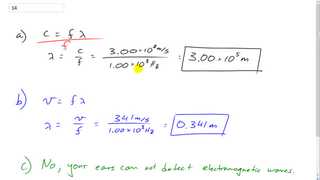 14
a) c = f λ
f
λ = c/f = 3.00×10⁸ m/s / 1.00×10³ Hz = 3.00×10⁵ m
b) v = f λ
λ = v/f = 341 m/s / 1.00×10³ Hz = 0.341 m
c) No, your ears can not detect electromagnetic waves.